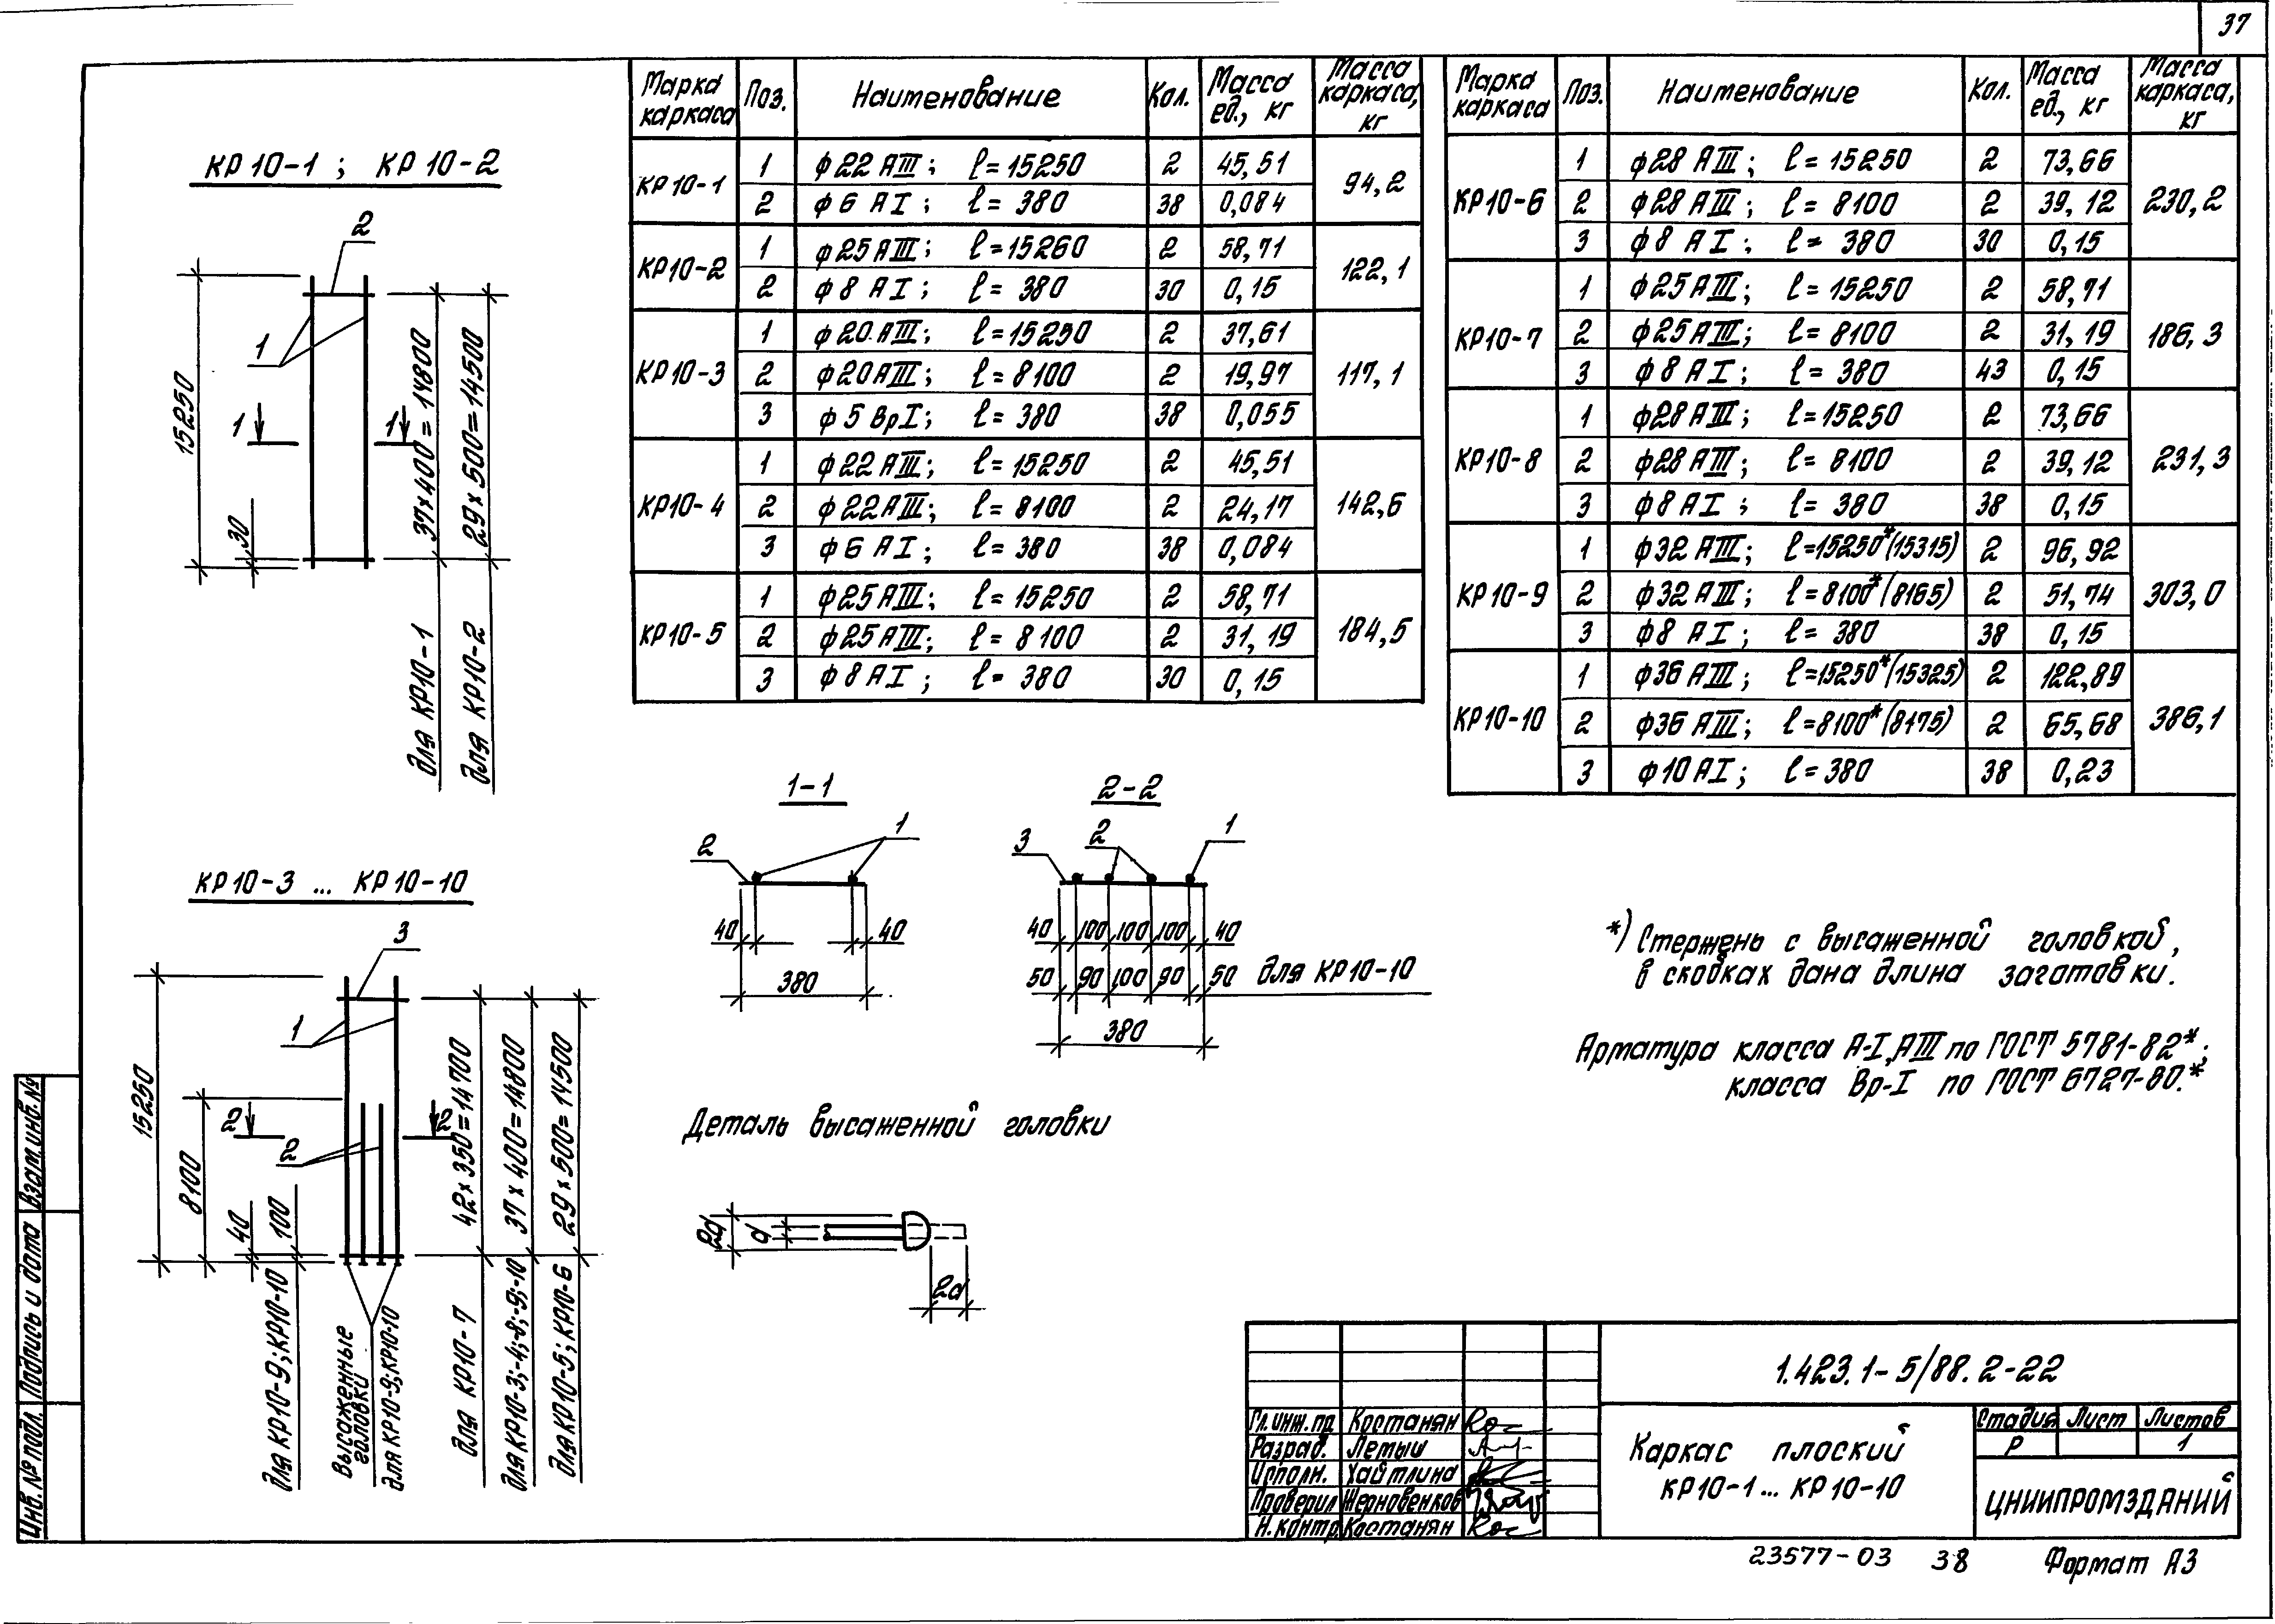 37
КР10-1 ; КР10-2
2
1
15250
30
1 1
37х400=14800
29х500=14500
для КР10-1
для КР10-2
Марка каркаса Поз. Наименование Кол. Масса ед., кг Масса каркаса, кг
КР10-1 1 ф22 АIII; ℓ=15250 2 45,51 94,2
2 ф6 АI; ℓ= 380 38 0,084
КР10-2 1 ф25 АIII; ℓ=15260 2 58,71 122,1
2 ф8 АI; ℓ= 380 30 0,15
КР10-3 1 ф20 АIII; ℓ=15250 2 37,61 117,1
2 ф20АIII; ℓ=8100 2 19,97
3 ф5 ВрI; ℓ=380 38 0,055
КР10-4 1 ф22 АIII; ℓ=15250 2 45,51 142,6
2 ф22АIII; ℓ=8100 2 24,17
3 ф6 АI; ℓ=380 38 0,084
КР10-5 1 ф25 АIII; ℓ=15250 2 58,71 184,5
2 ф25 АIII; ℓ=8100 2 31,19
3 ф8 АI; ℓ= 380 30 0,15
Марка каркаса Поз. Наименование Кол. Масса ед., кг Масса каркаса, кг
КР10-6 1 ф28 АIII; ℓ=15250 2 73,66 230,2
2 ф28 АIII; ℓ= 8100 2 39,12
3 ф8 АI; ℓ= 380 30 0,15
КР10-7 1 ф25 АIII; ℓ=15250 2 58,71 186,3
2 ф25 АIII; ℓ=8100 2 31,19
3 ф8 АI; ℓ= 380 43 0,15
КР10-8 1 ф28 АIII; ℓ=15250 2 73,66 231,3
2 ф28 АIII; ℓ=8100 2 39,12
3 ф8 АI; ℓ= 380 38 0,15
КР10-9 1 ф32 АIII; ℓ=15250*(15315) 2 96,92 303,0
2 ф32 АIII; ℓ=8100*(8165) 2 51,74
3 ф8 АI; ℓ= 380 38 0,15
КР10-10 1 ф36 АIII; ℓ=15250*(15325) 2 122,89 386,1
2 ф36 АIII; ℓ=8100*(8175) 2 65,68
3 ф10 АI; ℓ=380 38 0,23
1-1
2 1
40 40
380
2-2
3 2 1
40 100 100 100 40
50 90 100 90 50 для КР10-10
380
КР10-3 ... КР10-10
3
1
15250
8100
2 2
2
40
100
42х350=14700
37х400=14800
29х500=14500
для КР10-9; КР10-10
Высаженные головки
для КР10-9; КР10-10
для КР10-7
для КР10-3;-4;-8;-9;-10
для КР10-5; КР10-6
Деталь высаженной головки
2d d
2d
*) Стержень с высаженной головкой,
в скобках дана длина заготовки.
Арматура класса А-I, АIII по ГОСТ 5781-82*;
класса Вр-I по ГОСТ 6727-80.*
Взам. инв. №
Подпись и дата
Инв. № подл.
1.423.1-5/88.2-22
Гл. инж. пр Костанян
Разраб. Летыш
Исполн. Хайтлина
Проверил Жерновенков
Н. контр. Костанян
Каркас плоский
КР10-1 ... КР10-10
Стадия Лист Листов
Р 1
ЦНИИПРОМЗДАНИЙ
23577-03 38 Формат А3